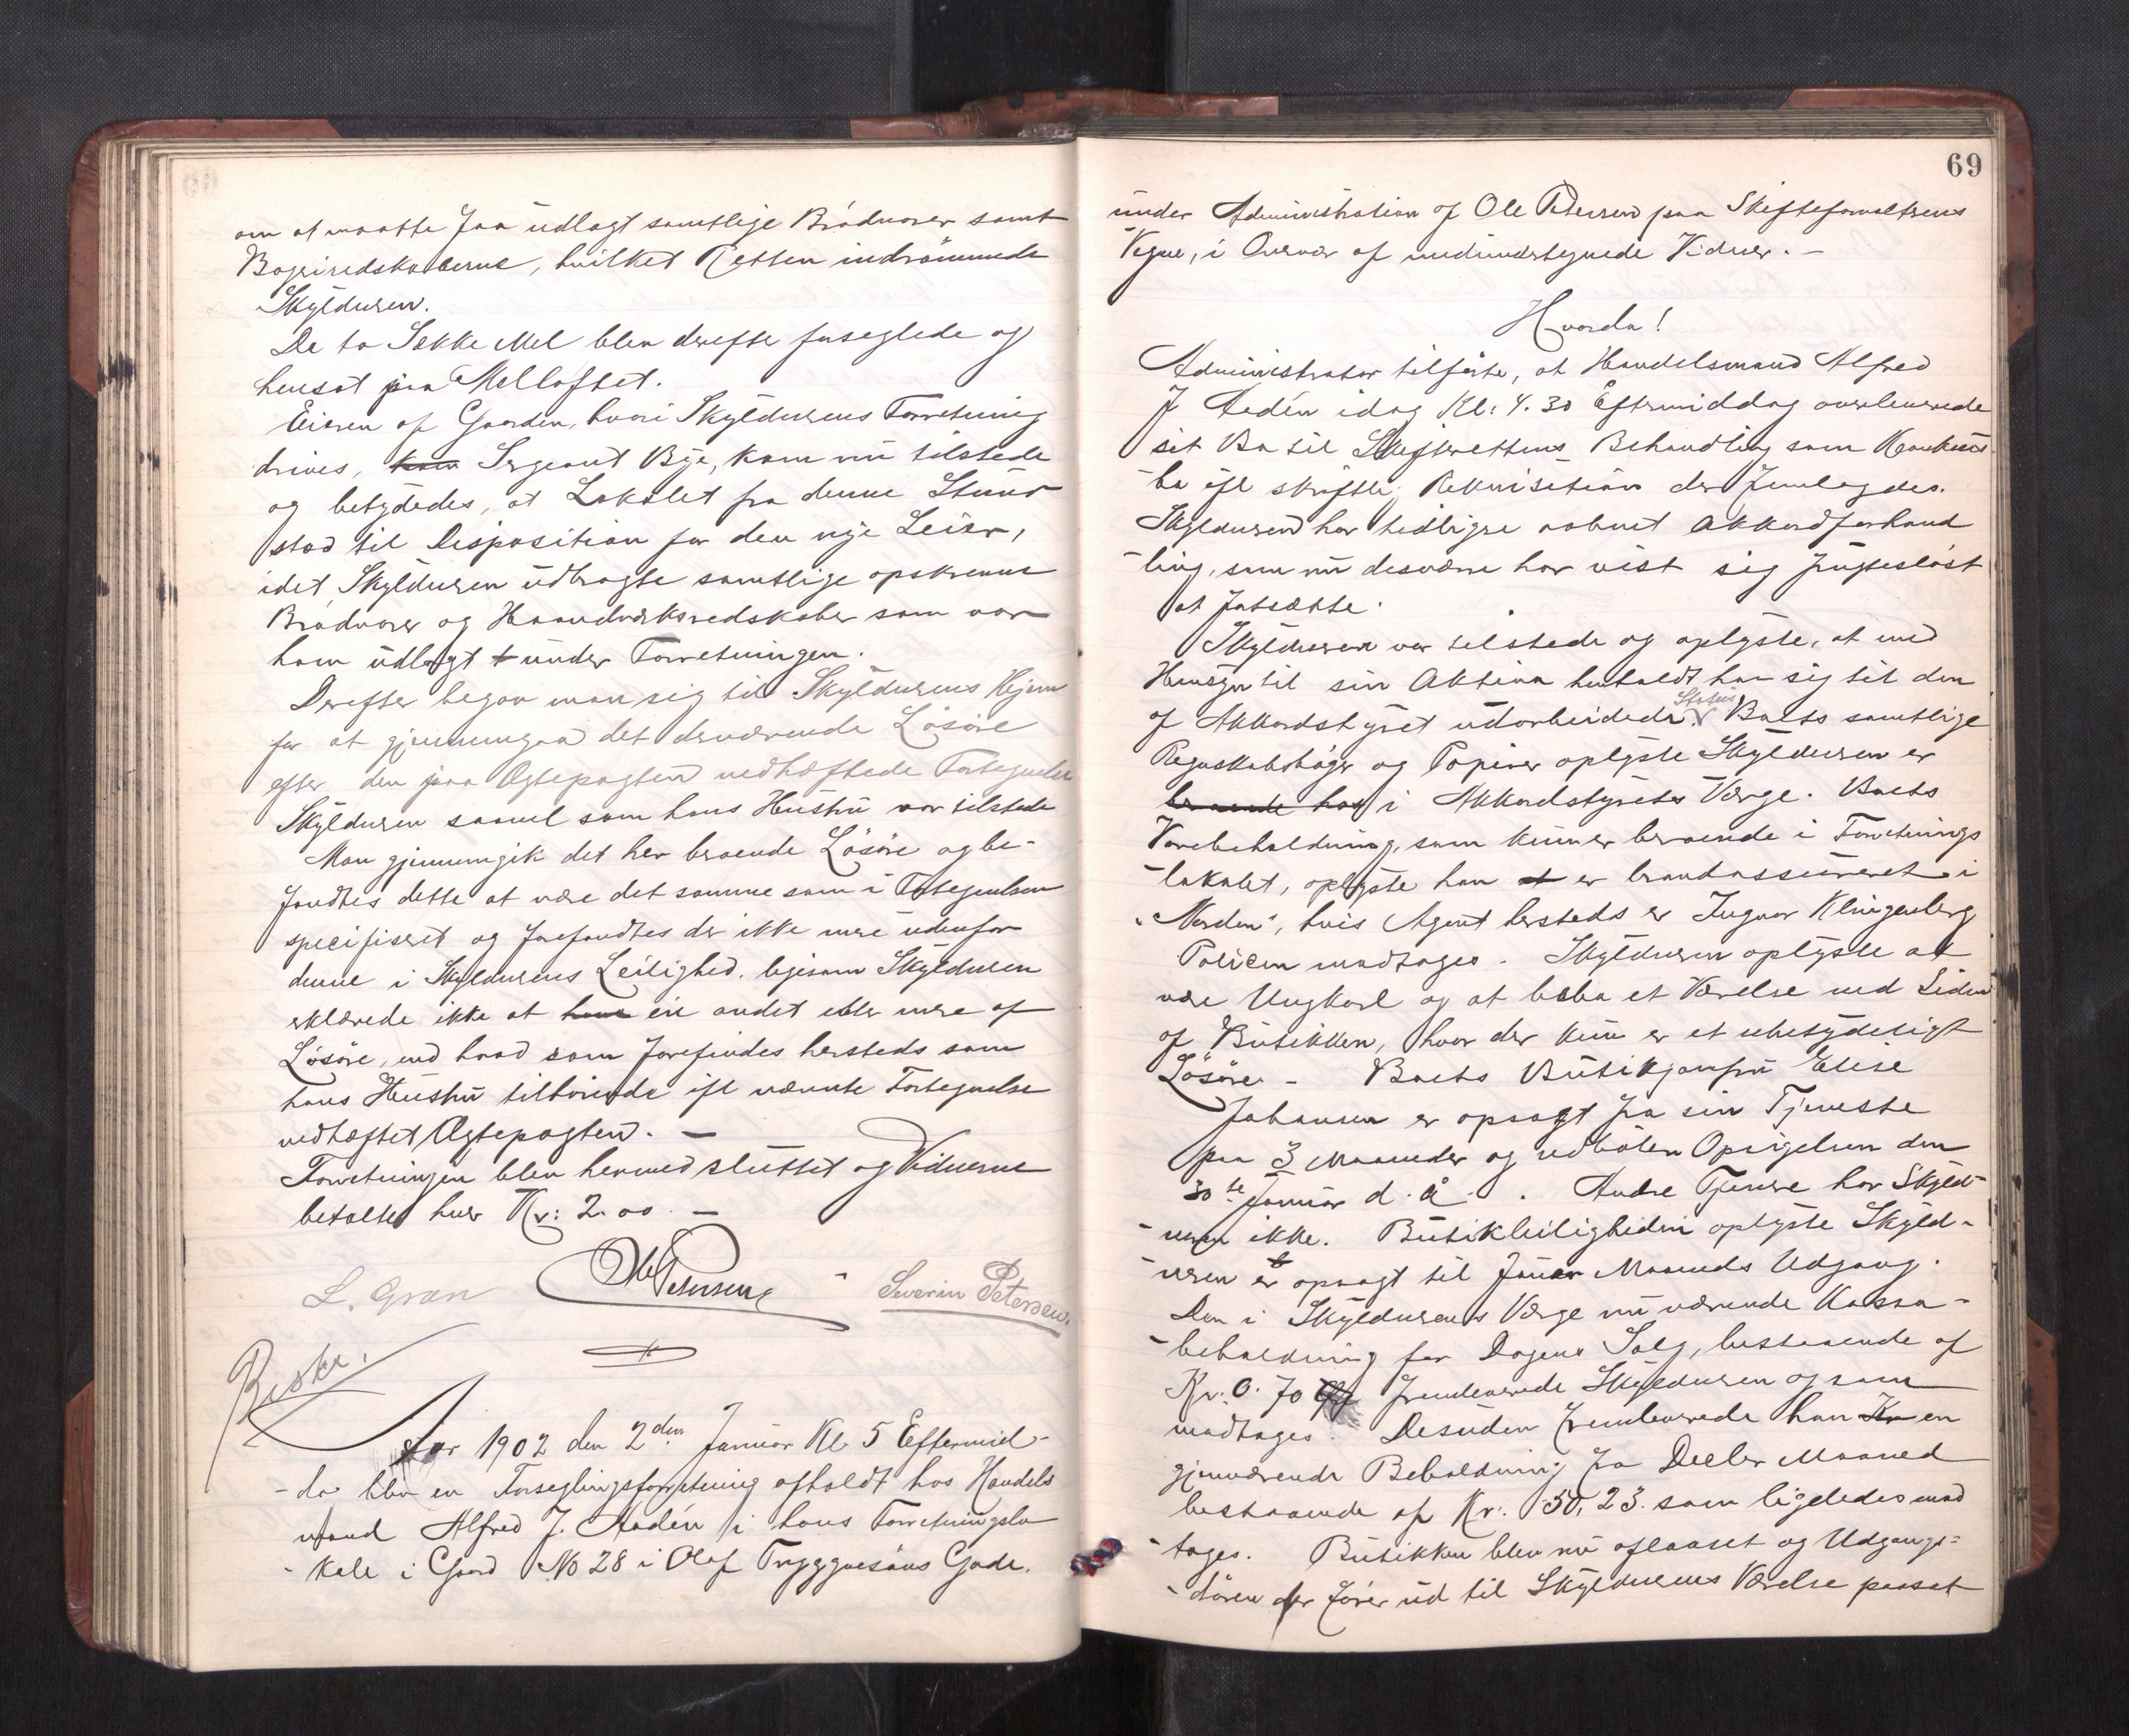 om at maatte faa udlagt samtlige Brödvarer samt
Bageriredskaberne, hvilket Retten indrömmede
Skyldneren.
De to Sække Mel blev derefter forseglede og
hensat paa Melloftet.
Eieren af Gaarden, hvori Skyldnerens Forretning
drives, kom Sergeant Bye, kom nu tilstede
og betydedes, at Lokalet fra denne Stund
stod til Disposition for den nye Leier,
idet Skyldneren udbragte samtlige opskrevne
Brödvarer og Haandværksredskaber som var
ham udlagt t under Forretningen.
Derefter begav man sig til Skyldnerens Hjem
for at gjennemgaa det derværende Lösöre
efter den paa Ægtepagten vedhæftede Fortegnelse
Skyldneren saavel som hans Hustru var tilstede
Man gjennemgik det her beroende Lösöre og be-
fandtes dette at være det samme som i Fortegnelsen
specifiseret og forefandtes der ikke mere udenfor
denne i Skyldnerens Leilighed, ligesom Skyldneren
erklærede ikke at have eie andet eller mere af
Lösöre, end hvad som forefindes hersteds som
hans Hustru tilhörende ifl nævnte Fortegnelse
vedhæftet Ægtepagten. —
Forretningen blev hermed sluttet og Vidnerne
betaltes hver Kr: 2.00. —
L. Gran Ole Petersen - Severin Petersen.
Beskr.
Aar 1902 den 2den Januar Kl 5 Eftermid-
-da blev en Forseglingsforretning afholdt hos Handels
mand Alfred J. Aadén i hans Forretningslo
-kale i Gaard No 28 i Olaf Tryggvesöns Gade.
69
under Administration af Ole Petersen paa Skifteforvalterens
Vegne, i Overvær af medundertegnede Vidner. —
Hvorda!
Administrator tilförte, at Handelsmand Alfred
J Aadén idag Kl: 4.30 Eftermiddag overleverede
sit Bo til Skifterettens Behandling som Konkurs
-bo ifl skriftlig Rekvisition der fremlagdes.
Skyldneren har tidligere aabnet Akkordforhand
-ling, som nu desværre har vist sig frugteslöst
at fortsætte.
Skyldneren var tilstede og oplyste, at med
Hensyn til sin Aktiva henholdt han sig til den
af Akkordstyret udarbeidede Status Boets samtlige
Regnskabsböger og Papirer oplyste Skyldneren er
beroende hos i Akkordstyrets Værge. Boets
Varebeholdning, som kun er beroende i Forretnings
-lokalet, oplyste han at er brandassureret i
"Norden", hvis Agent hersteds er Ingvar Klingenberg
Policen modtages. Skyldneren oplyste at
være Ungkarl og at bebo et Værelse ved Siden
af Butikken, hvor der kun er et ubetydeligt
Lösöre. - Boets Butikjomfru Elise
Johansen er opsagt fra sin Tjeneste
paa 3 Maaneder og udlöber Opsigelsen den
30te Januar d. å. . Andre Tjenere har Skyld-
-neren ikke. Butikleiligheden oplyste Skyld-
-neren er opsagt til Januar Maaneds Udgang.
Den i Skyldnerens Værge nu værende Kassa-
-beholdning for Dagens Salg, bestaaende af
Kr: 0.70 fremleverede Skyldneren og som
modtages. Desuden fremleverede han Kr en
gjenværende Beholdning fra Decbr Maaned
bestaaende af Kr: 50,23. som ligeledes mod
-tages. Butikken blev nu aflaaset og Udgangs=
-dören der förer ud til Skyldnerens Værelse passet